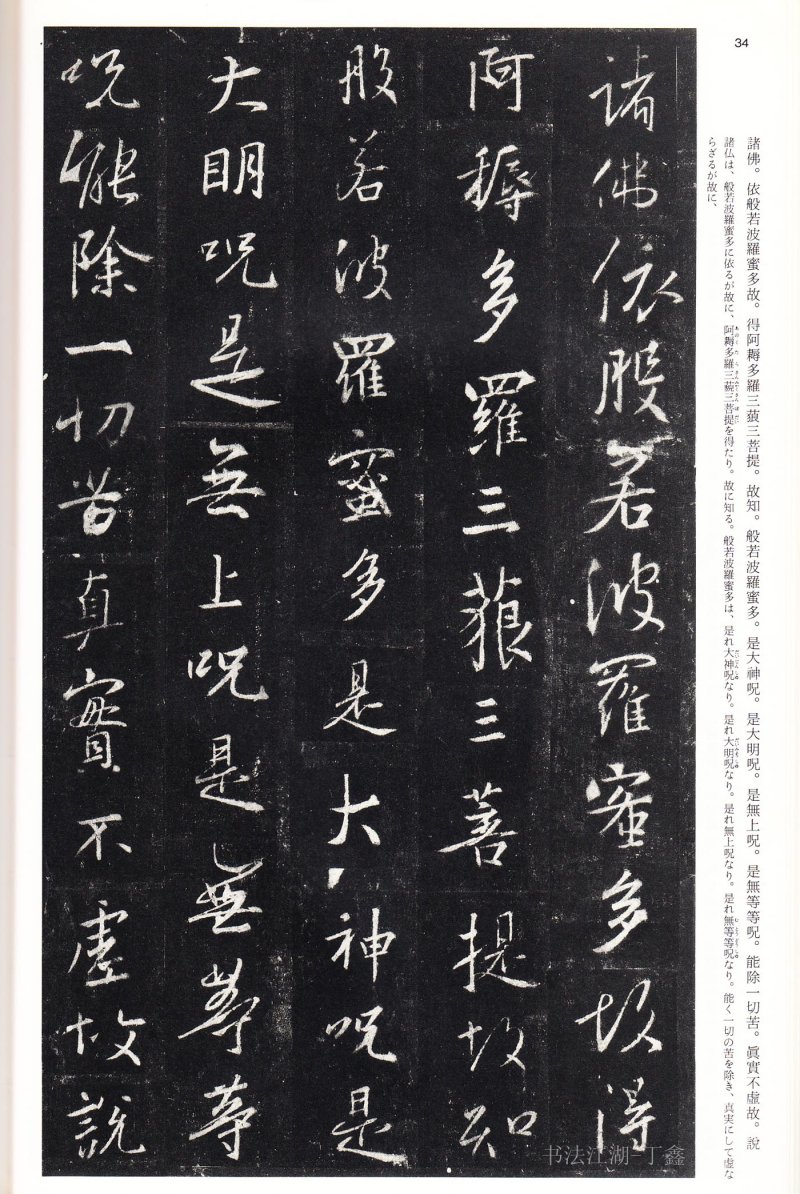 34
諸佛。依般若波羅蜜多故。得阿耨多羅三藐三菩提。故知。般若波羅蜜多。是大神呪。是大明呪。是無上呪。是無等等呪。能除一切苦。眞實不虛故。說
諸仏は、般若波羅蜜多に依るが故に、阿耨多羅三藐三菩提を得たり。故に知る。般若波羅蜜多は、是れ大神呪なり。是れ大明呪なり。是れ無上呪なり。是れ無等等呪なり。能く一切の苦を除き、真実にして虚な
らざるが故に、
諸佛依般若波羅蜜多故得
阿耨多羅三藐三菩提故知
般若波羅蜜多是大神呪是
大明呪是無上呪是無等等
呪能除一切苦真實不虛故說
书法江湖-丁鑫